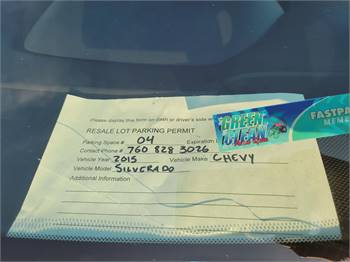 Please display this form on DMR or driver's side w
RESALE LOT PARKING PERMIT
Parking Space # 04 Expiration
Contact Phone # 760 828 3026
Vehicle Year 2015 Vehicle Make CHEVY
Vehicle Model SILVERADO
Additional Information
GREEN
CLEAN
FASTPA
MEMB